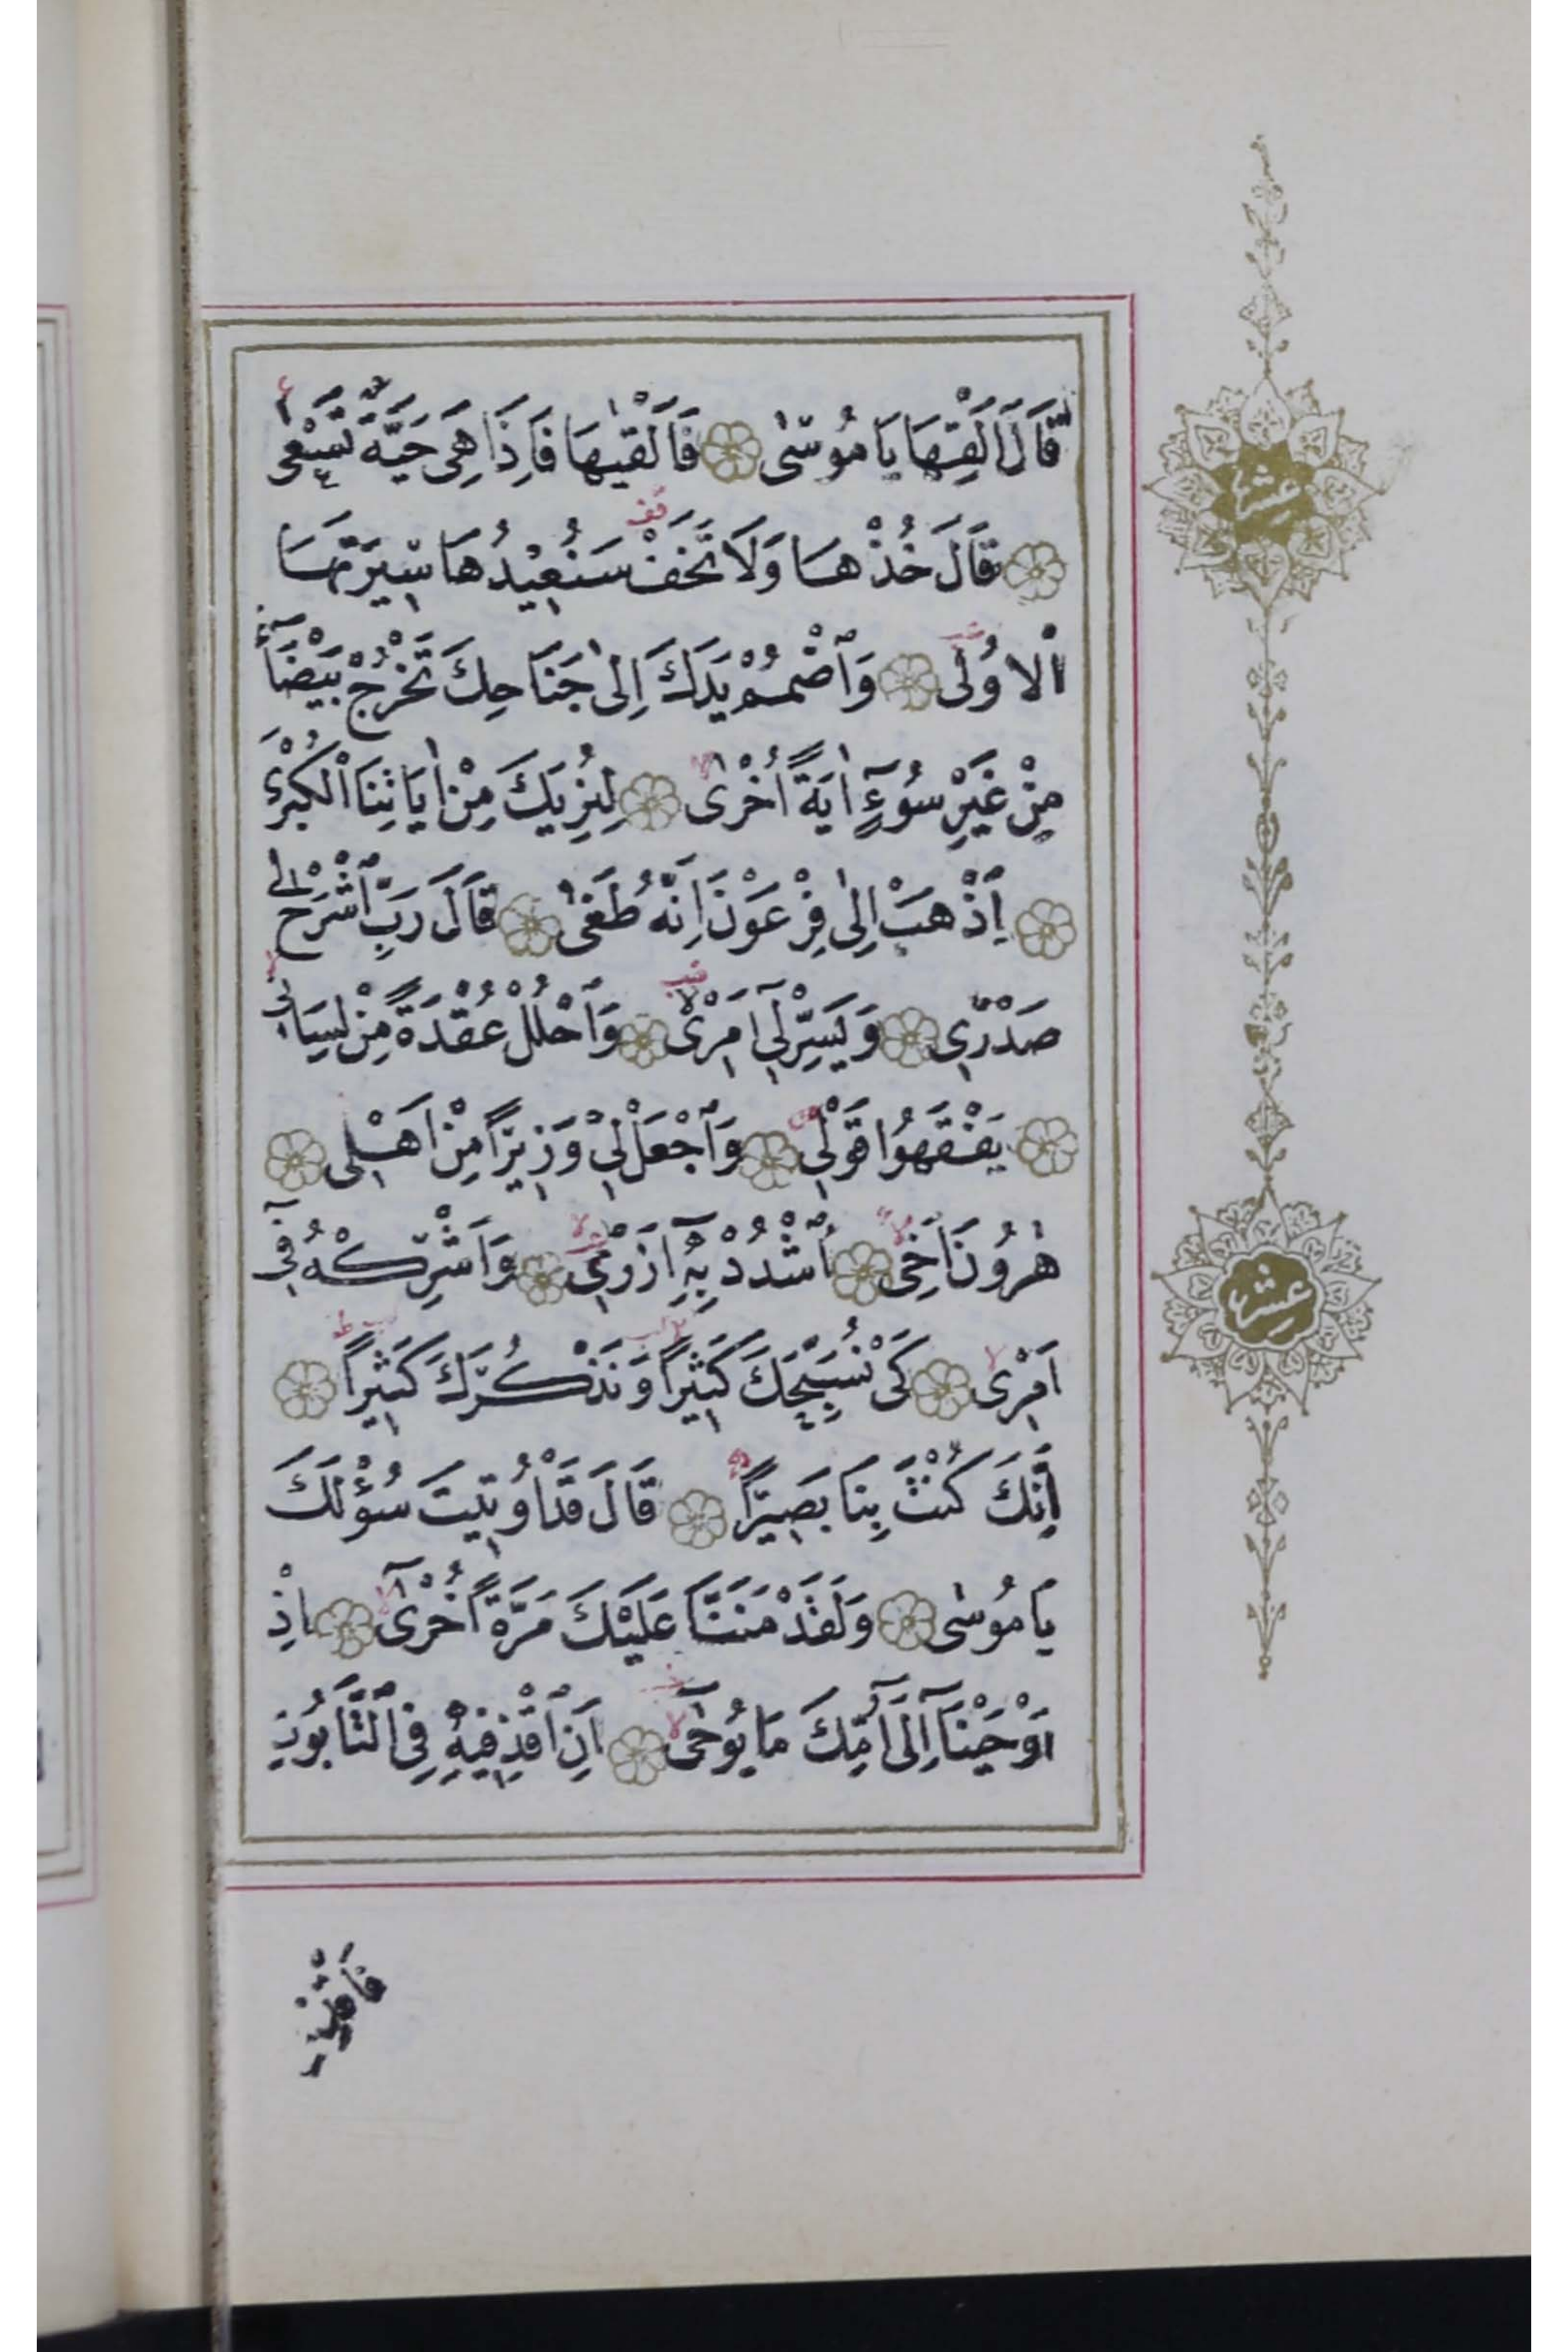 قَالَ اَلْقِهَا يَا مُوسٰى فَاَلْقٰيهَا فَاِذَا هِىَ حَيَّةٌ تَسْعٰى
قَالَ خُذْهَا وَلَا تَخَفْ سَنُعِيْدُهَا سِيرَتَهَا
الْاُولٰى وَاضْمُمْ يَدَكَ اِلٰى جَنَاحِكَ تَخْرُجْ بَيْضَآءَ
مِنْ غَيْرِ سُوءٍ اٰيَةً اُخْرٰى لِنُرِيَكَ مِنْ اٰيَاتِنَا الْكُبْرٰى
اِذْهَبْ اِلٰى فِرْعَوْنَ اِنَّهُ طَغٰى قَالَ رَبِّ اشْرَحْ لِى
صَدْرِى وَيَسِّرْ لِى اَمْرِى وَاحْلُلْ عُقْدَةً مِنْ لِسَانِى
يَفْقَهُوا قَوْلِى وَاجْعَلْ لِى وَزِيرًا مِنْ اَهْلِى
هٰرُونَ اَخِى اُشْدُدْ بِهِ اَزْرِى وَاَشْرِكْهُ فِى
اَمْرِى كَىْ نُسَبِّحَكَ كَثِيرًا وَنَذْكُرَكَ كَثِيرًا
اِنَّكَ كُنْتَ بِنَا بَصِيرًا قَالَ قَدْ اُوتِيتَ سُؤْلَكَ
يَا مُوسٰى وَلَقَدْ مَنَنَّا عَلَيْكَ مَرَّةً اُخْرٰى اِذْ
اَوْحَيْنَا اِلٰى اُمِّكَ مَا يُوحٰى اَنِ اقْذِفِيهِ فِى التَّابُوتِ
فَاقْذِفِيهِ
عشر
عشر